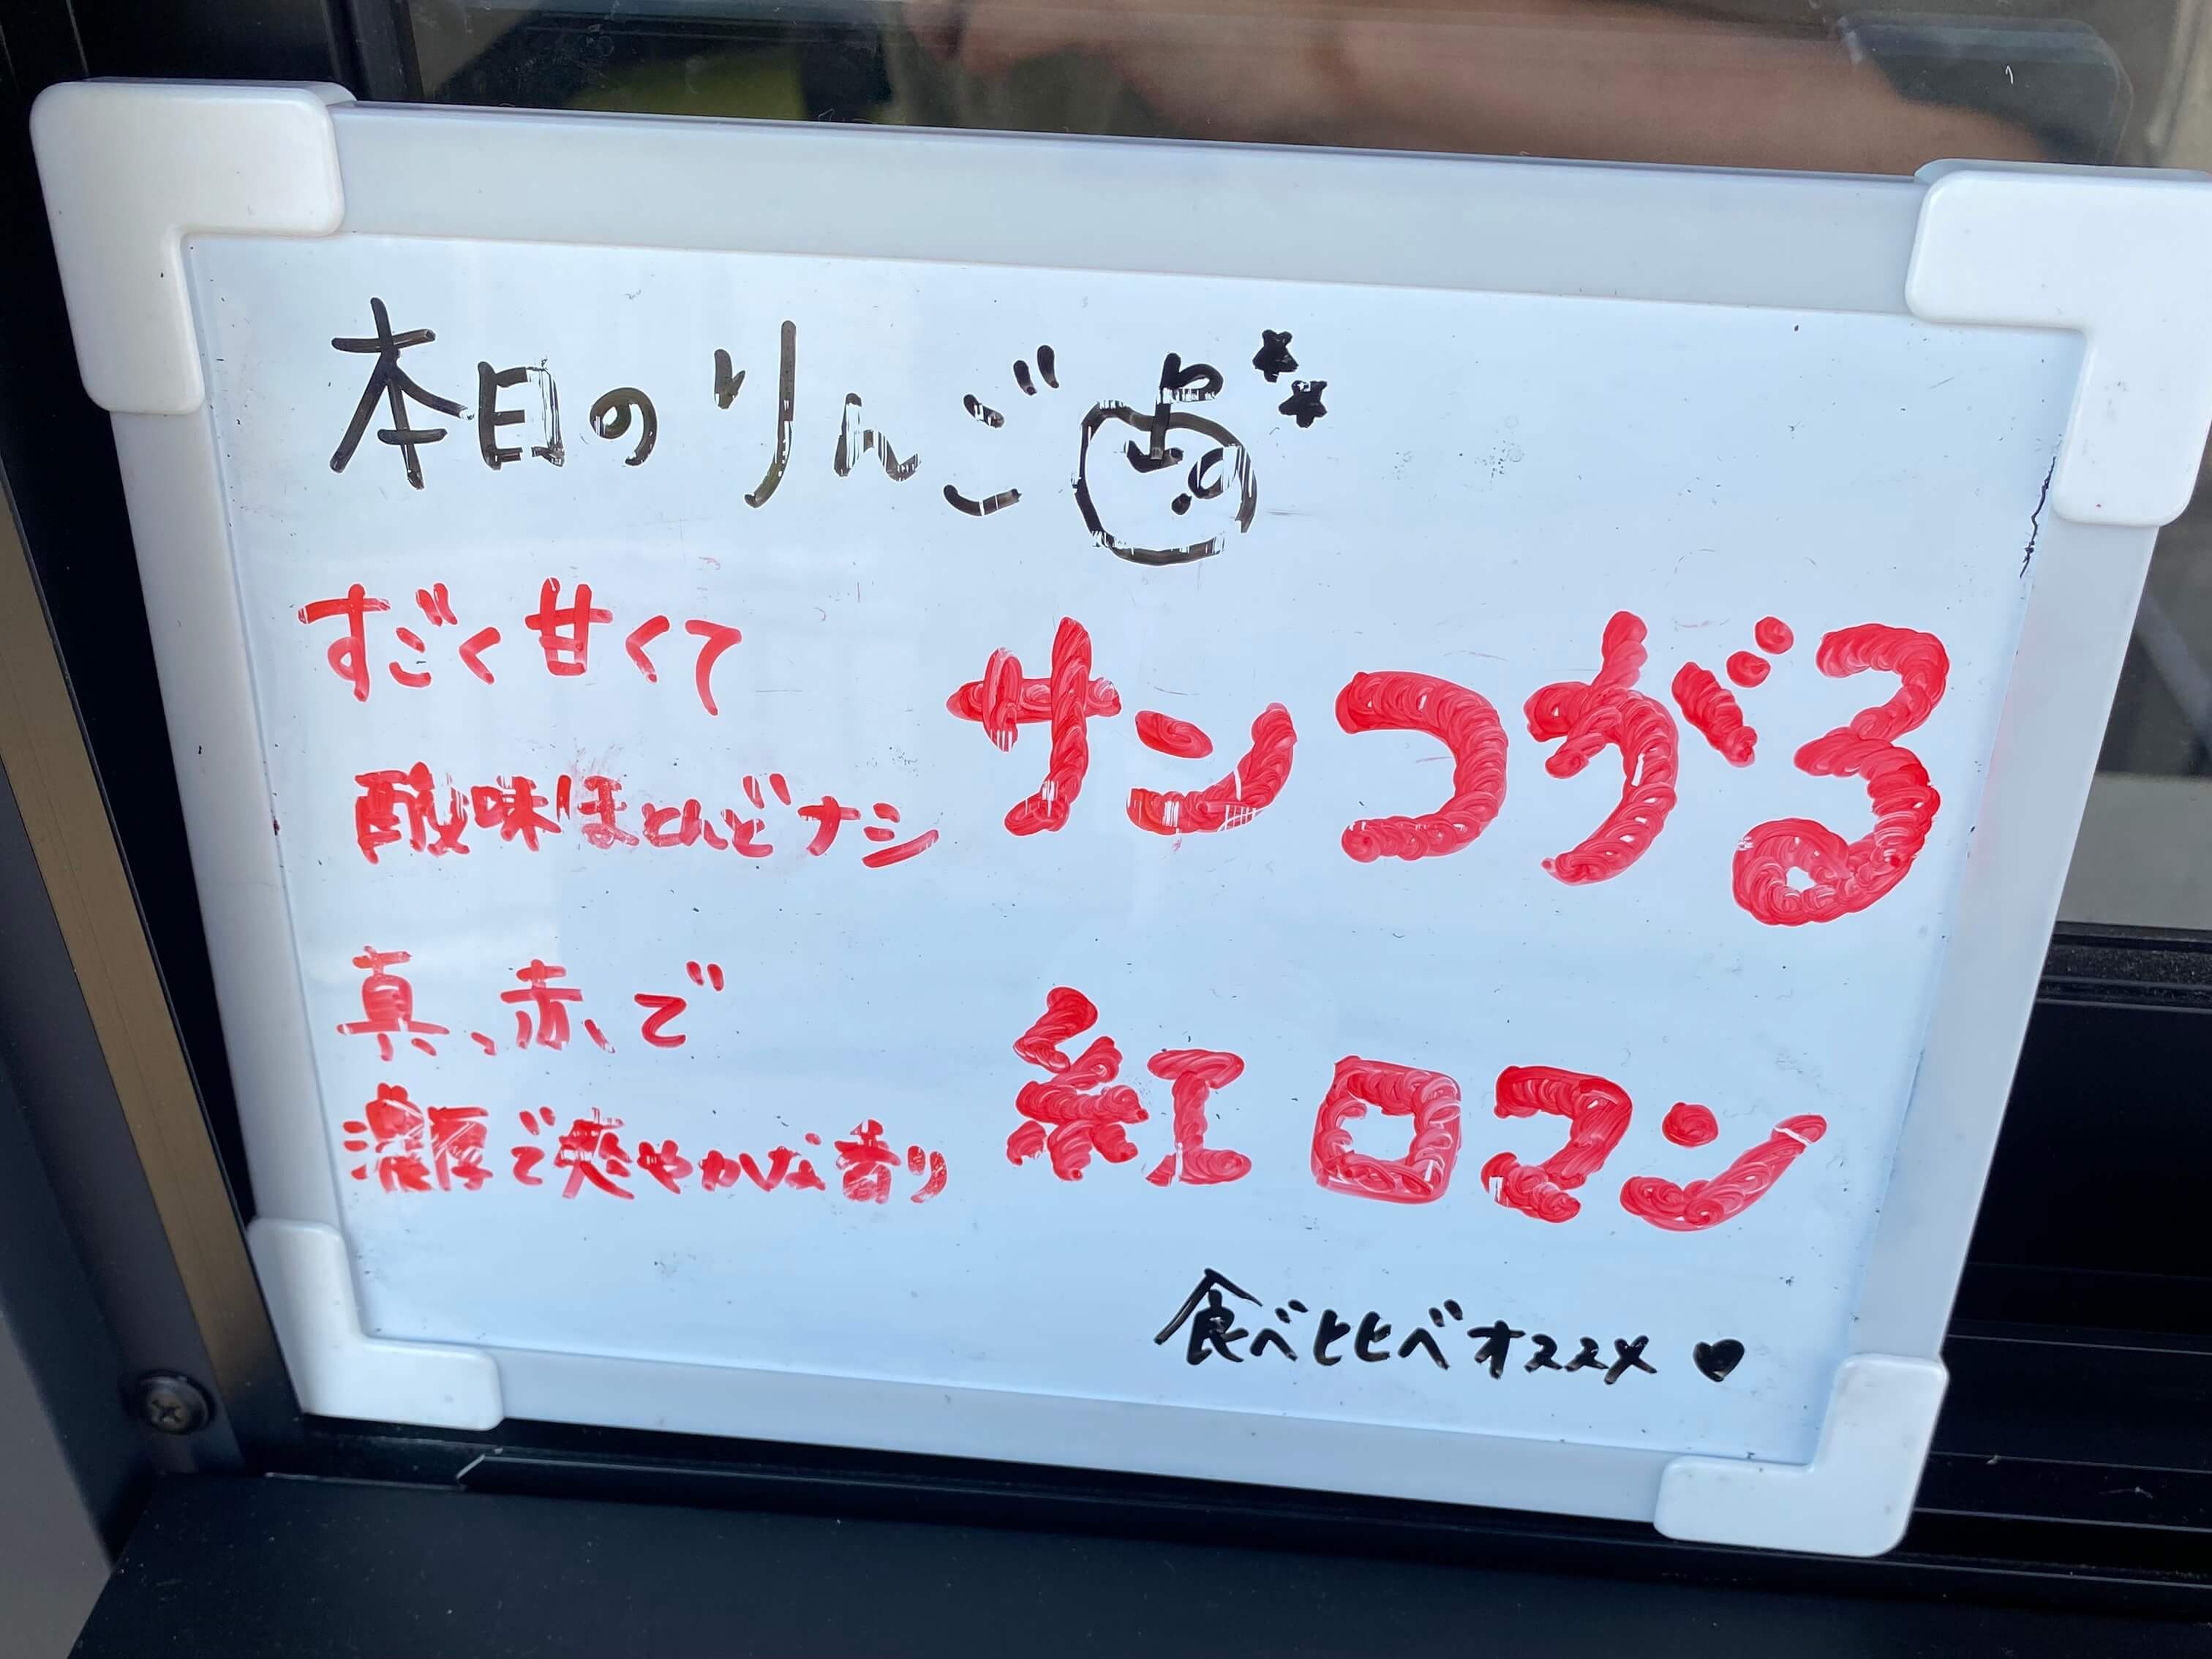 本日のりんご
すごく甘くて
酸味ほとんどナシ
サンつがる
真、赤、で
濃厚で爽やかな香り
紅ロマン
食べ比べオススメ♥